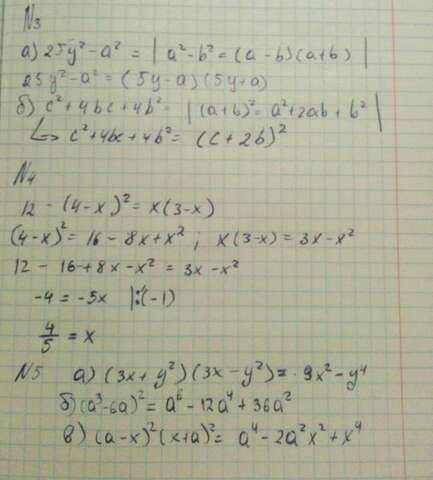 N3
а) 25y² - a² = | a² - b² = (a - b)(a + b) |
25y² - a² = (5y - a)(5y + a)
б) c² + 4bc + 4b² = | (a + b)² = a² + 2ab + b² |
↳ c² + 4bc + 4b² = (c + 2b)²
N4
12 - (4 - x)² = x(3 - x)
(4 - x)² = 16 - 8x + x² ; x(3 - x) = 3x - x²
12 - 16 + 8x - x² = 3x - x²
-4 = -5x |:(-1)
4/5 = x
N5 а) (3x + y²)(3x - y²) = 9x² - y⁴
б) (a³ - 6a)² = a⁶ - 12a⁴ + 36a²
в) (a - x)²(x + a)² = a⁴ - 2a²x² + x⁴